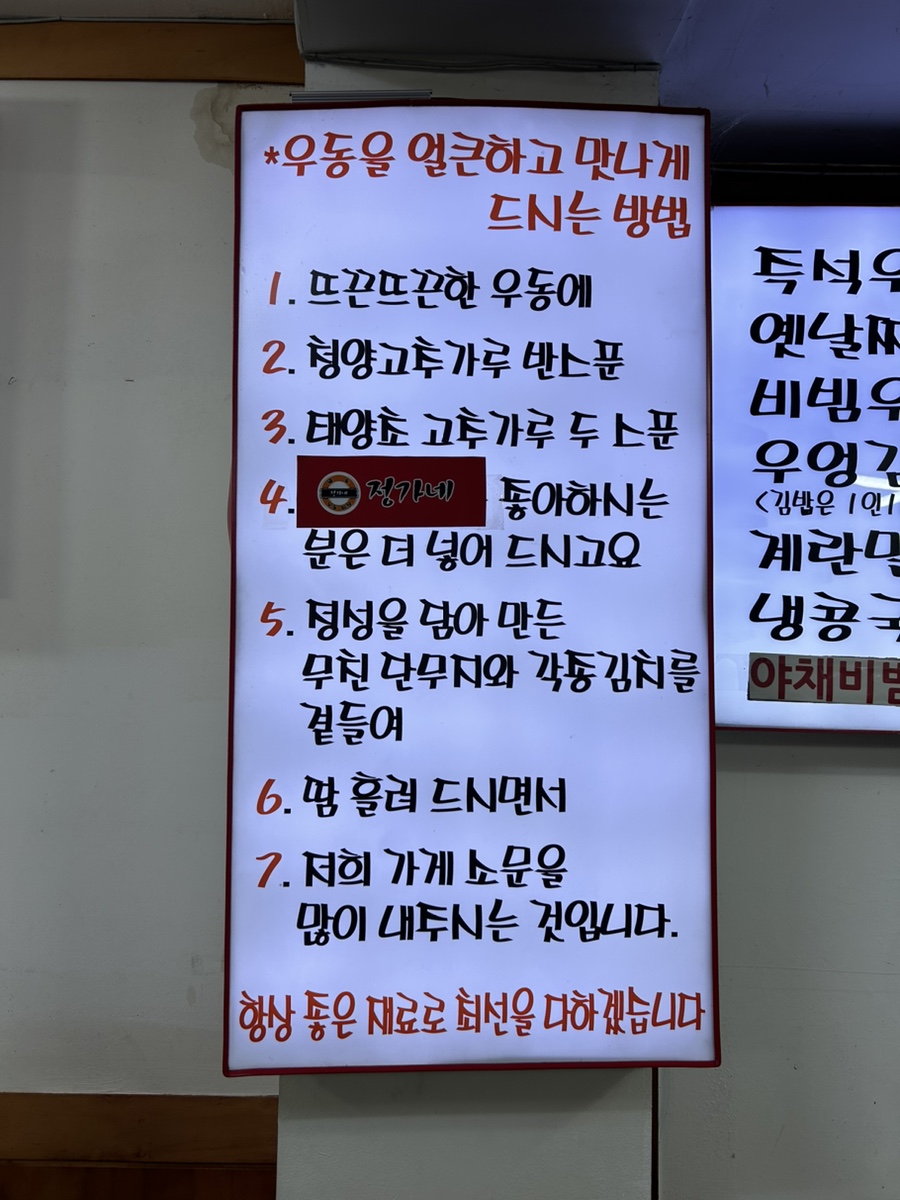 *우동을 얼큰하고 맛나게
드시는 방법
1. 뜨끈뜨끈한 우동에
2. 청양고추가루 반스푼
3. 태양초 고추가루 두 스푼
4. 정가네 좋아하시는
분은 더 넣어 드시고요
5. 정성을 담아 만든
무친 단무지와 각종김치를
곁들여
6. 땀 흘려 드시면서
7. 저희 가게 소문을
많이 내주시는 것입니다.
항상 좋은 재료로 최선을 다하겠습니다
즉석우
옛날짜
비빔우
우엉김
<김밥은 1인1
계란말
냉콩국
야채비빔